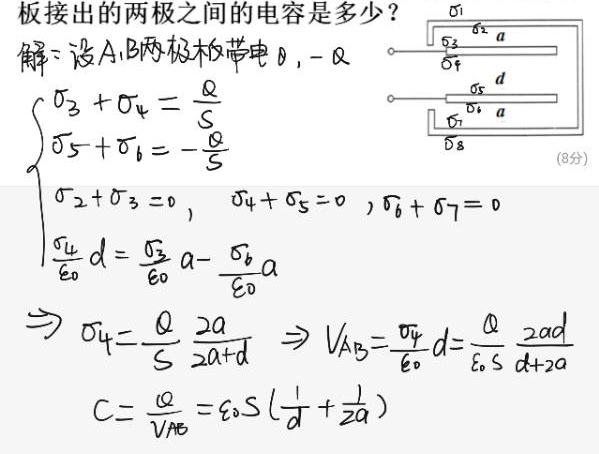 板接出的两极之间的电容是多少？
解：设A,B两极板带电Q，-Q
σ1
σ2 a
σ3
σ4
d
σ5
σ6 a
σ7
σ8
(8分)
σ3 + σ4 = Q/S
σ5 + σ6 = -Q/S
σ2 + σ3 = 0， σ4 + σ5 = 0 ，σ6 + σ7 = 0
σ4/ε0 d = σ3/ε0 a - σ6/ε0 a
⇒ σ4 = Q/S 2a/(2a+d) ⇒ VAB = σ4/ε0 d = Q/(ε0S) 2ad/(d+2a)
C = Q/VAB = ε0S(1/d + 1/2a)